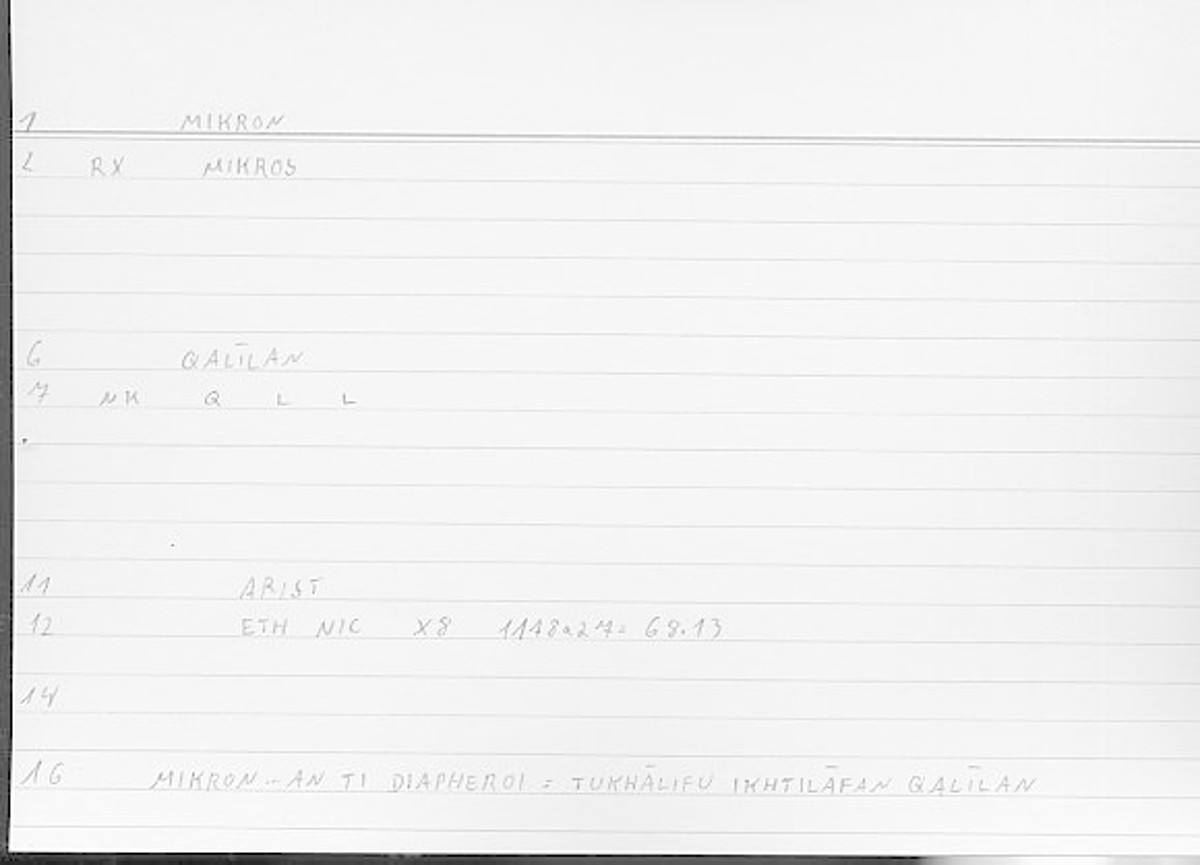 1 MIKRON
2 RX MIKROS
6 QALĪLAN
7 NK Q L L
11 ARIST
12 ETH NIC X8 1148a27= 68.13
14
16 MIKRON..AN TI DIAPHEROI = TUKHĀLIFU IKHTILĀFAN QALĪLAN